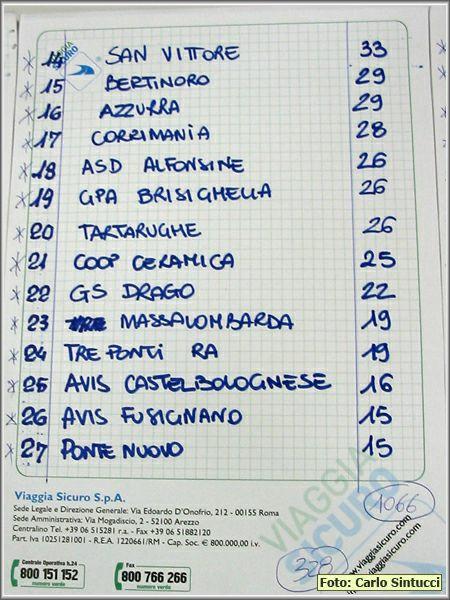 VIAGGIA
SICURO
* 14 SAN VITTORE 33
* 15 BERTINORO 29
* 16 AZZURRA 29
* 17 CORRIMANIA 28
* 18 ASD ALFONSINE 26
* 19 GPA BRISIGHELLA 26
* 20 TARTARUGHE 26
* 21 COOP CERAMICA 25
* 22 GS DRAGO 22
* 23 MASSALOMBARDA 19
* 24 TRE PONTI RA 19
* 25 AVIS CASTELBOLOGNESE 16
* 26 AVIS FUSIGNANO 15
* 27 PONTE NUOVO 15
VIAGGIA
SICURO
1066
328
Viaggia Sicuro S.p.A.
Sede Legale e Direzione Generale: Via Edoardo D'Onofrio, 212 - 00155 Roma
Sede Amministrativa: Via Mogadiscio, 2 - 52100 Arezzo
Centralino Tel. +39 06 515281 r.a. - Fax +39 06 51882120
Part. Iva 10251281001 - R.E.A. 1220661/RM - Cap. Soc. € 800.000,00 i.v.
www.viaggiasicuro.com
www.viaggiasicuro.com
Centrale Operativa h.24
800 151 152
numero verde
Fax
800 766 266
numero verde
Foto: Carlo Sintucci